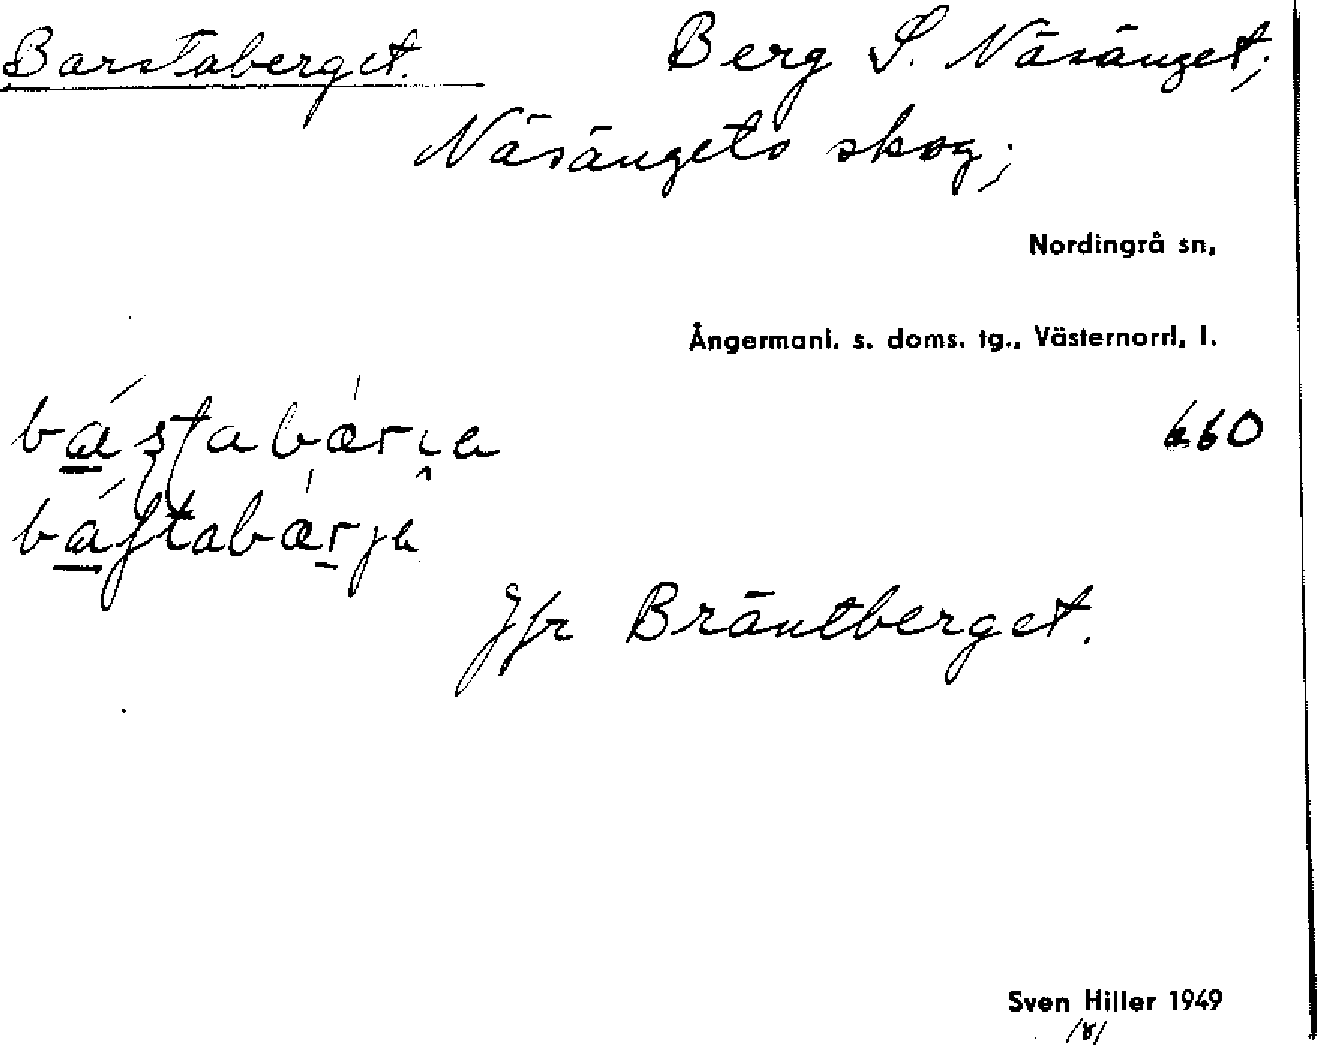 Barstaberget. Berg S. Näsänget;
Näsängets skog;
Nordingrå sn,
Ångermanl. s. doms. tg., Västernorrl. l.
660
Jfr Bräntberget.
Sven Hiller 1949